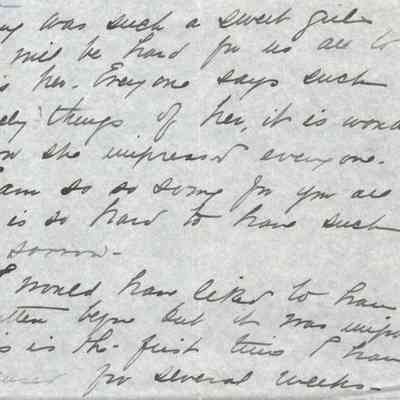 was such a sweet girl
will be hard for us all to
her. Everyone says such
things of her, it is
she impressed everyone.
am so so sorry for you all
is so hard to have such
sorrow-
I would have liked to have
but it was
is the first time I have
for several weeks-